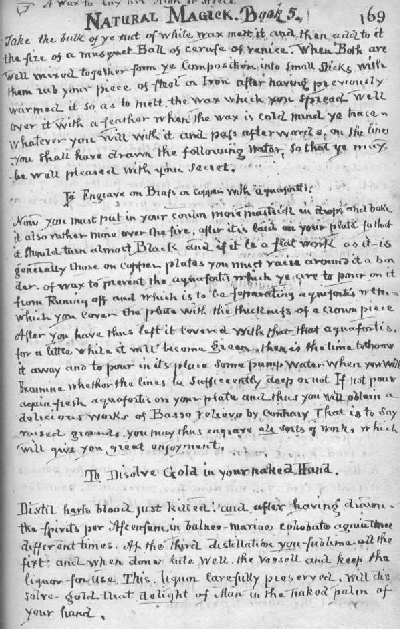 A Wax to lay on Iron or Steele
NATURAL MAGICK. Book 5. 169
Take the bulk of ye nut of white wax melt it and then add to it
the size of a musquet Ball of ceruse of venice. When Both are
well mixed together form ye Composition into small sticks with
them rub your piece of steel or Iron after having previously
warmed it so as to melt the wax which you spread well
over it with a feather when the wax is cold and ye trace
whatever you will with it and pass afterwards, on the lines
you shall have drawn the following water, so that ye may
be well pleased with your secret.
To Engrave on Brass or copper with aquafortis.
Now you must put in your more mastick in drops and bake
it also rather more over the fire, after it is laid on your plate so that
it should turn almost Black and if it be a flat work as it is
generally those on copper plates you must raise around it a bor
der of wax to prevent the aquafortis which ye are to pour on it
from Runing off and which is to be separating aquafortis with
which you cover the plate with the thickness of a crown piece
After you have thus left it covered with that aquafortis
for a little while it will become Green, then is the time to throw
it away and to pour in its place some pump Water when you will
Examine whether the lines be Sufficeently deep or not If not pour
again fresh aquafortis on your plate and thus you will obtain a
delicious works of Basso relievo by Contrary That is to say
raised grounds, you may thus engrave all sorts of works which
will give you great enjoyment.
To Disolve Gold in your naked Hand.
Distil harts blood just killed, and after having drawn
the spirits per Ascensum, in balneo-mariae, cohobate again three
different times. At the third distillation you sublime all the
fixt: and when done lute Well the vessell and keep the
liquor for use. This liquor carefully preserved. Will dis
solve gold that delight of Man in the naked palm of
your hand.